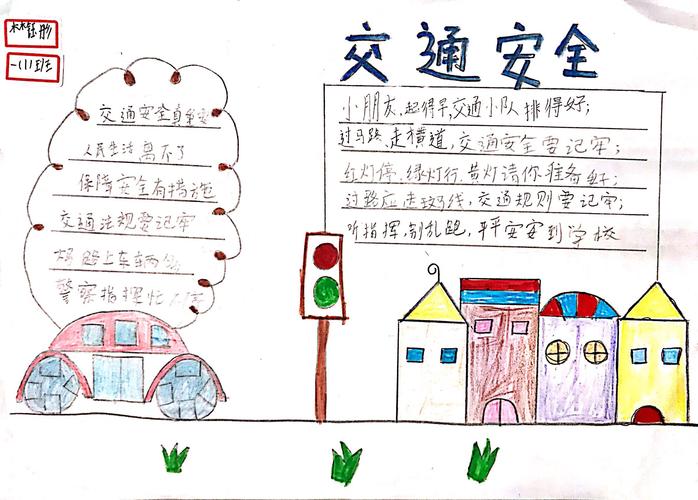 一(1)班
交通安全
交通安全真重要
人民生活离不了
保障安全有措施
交通法规要记牢
路上车辆
警察指挥忙
小朋友,起得早,交通小队排得好;
过马路,走横道,交通安全要记牢;
红灯停,绿灯行,黄灯请你准备好;
过路应走斑马线,交通规则要记牢;
听指挥,别乱跑,平平安安到学校